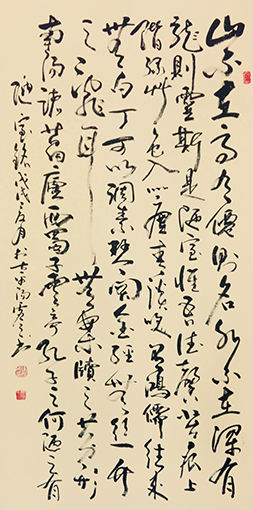 山不在高有僊則名水不在深有
龍則靈斯是陋室惟吾德馨苔痕上
階綠草色入簾青談笑有鴻儒往來
無白丁可以調素琴閱金經無絲竹
之亂耳無案牘之勞形
南陽諸葛廬西蜀子雲亭孔子云何陋之有
陋室銘戊戌夏月於書